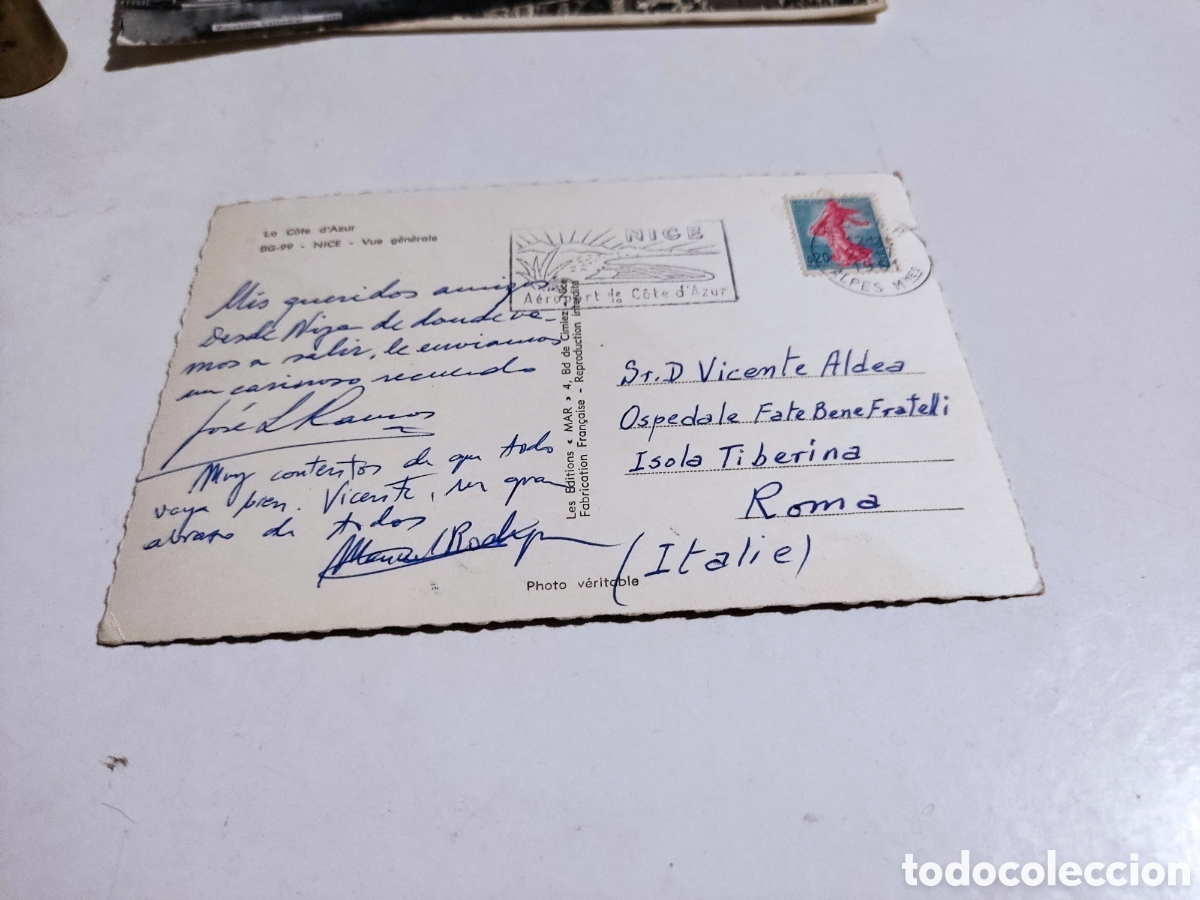 La Côte d'Azur
BG-99 - NICE - Vue générale
NICE
Aéroport de la Côte d'Azur
0,20
1961
ALPES Mmes
Mis queridos amigos:
Desde Niza de donde va-
mos a salir, le enviamos
un cariñoso recuerdo
José L Ramos
Muy contentos de que todo
vaya bien. Vicente, un gran
abrazo de todos
Manuel Rodrig
Les Editions « MAR » 4, Bd de Cimiez - Nice
Fabrication Française - Reproduction interdite
Sr. D Vicente Aldea
Ospedale FateBeneFratelli
Isola Tiberina
Roma
(Italie)
Photo véritable
todocoleccion